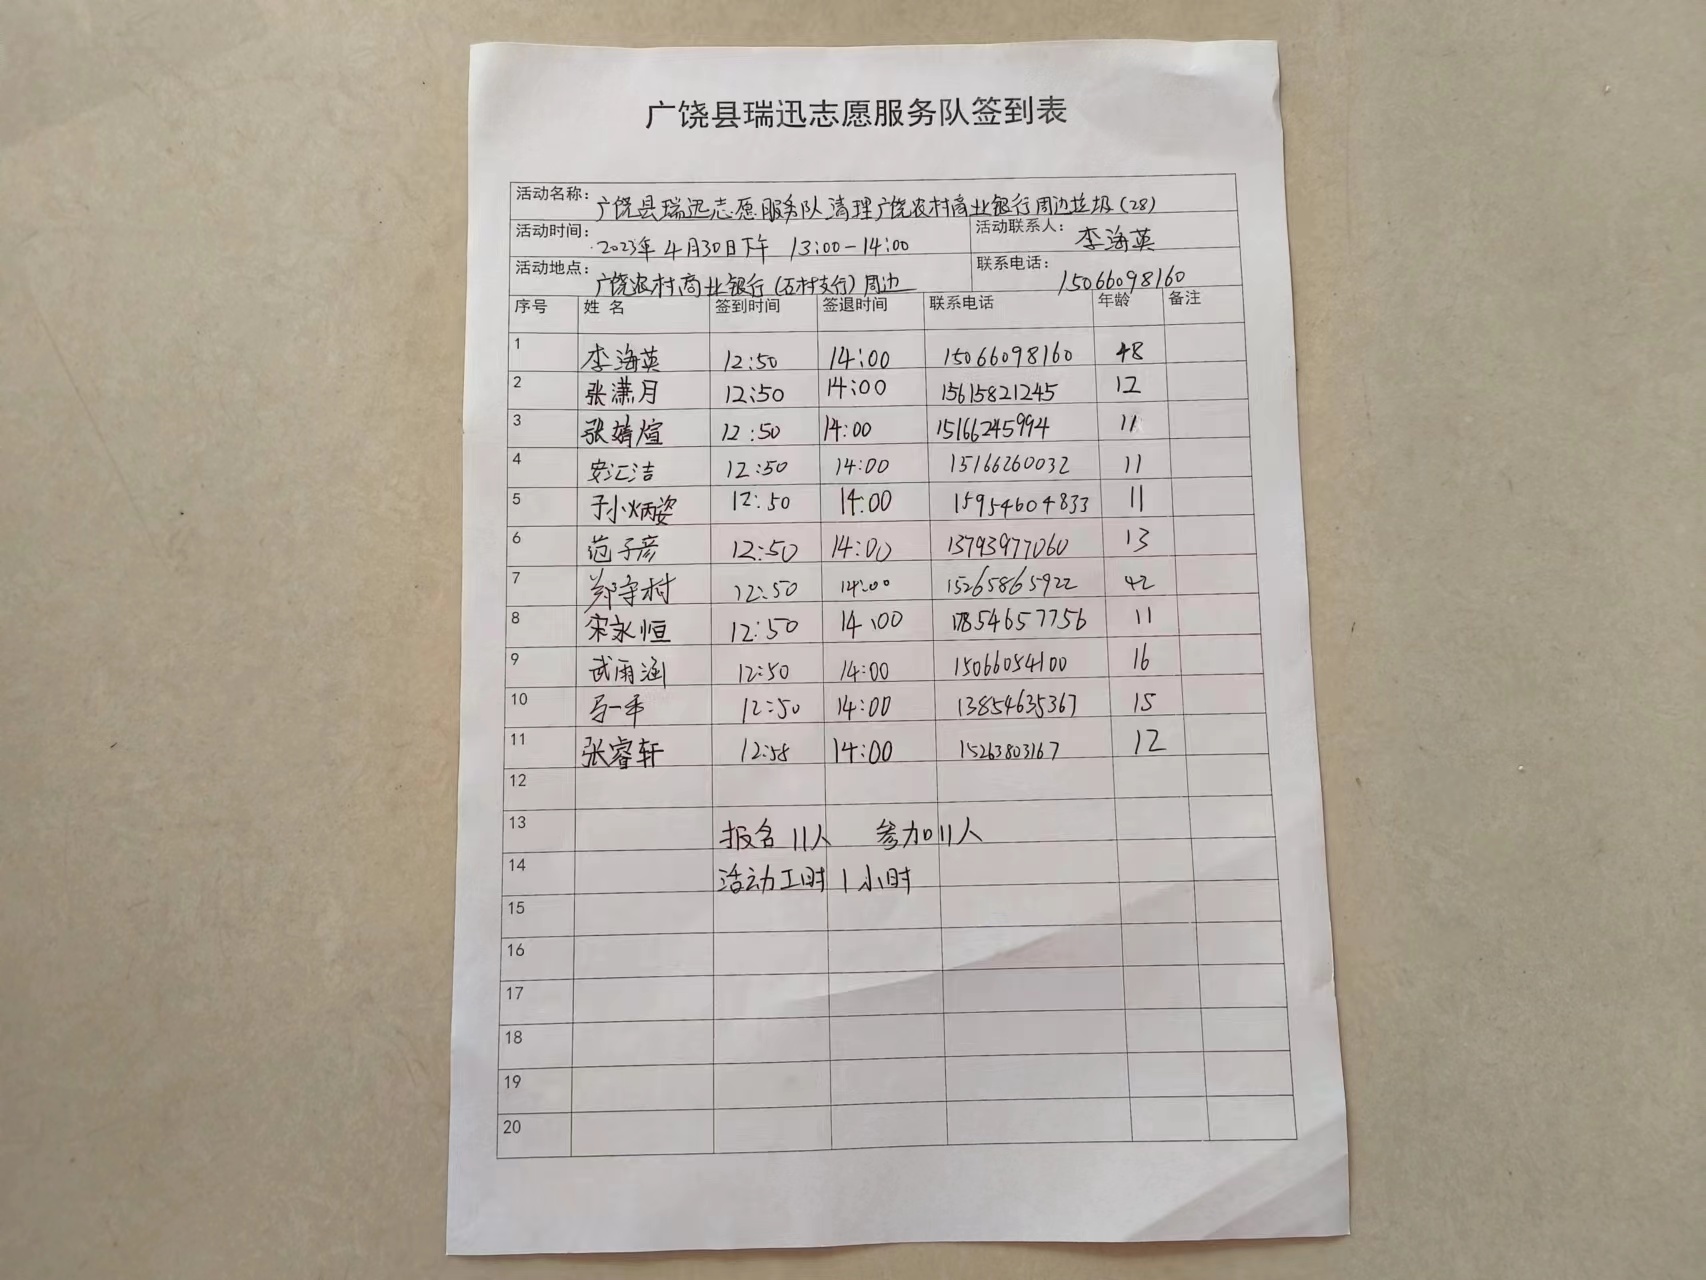 广饶县瑞迅志愿服务队签到表
活动名称: 广饶县瑞迅志愿服务队清理广饶农村商业银行周边垃圾(28)
活动时间: 2023年4月30日下午 13:00-14:00 活动联系人: 李海英
活动地点: 广饶农村商业银行(石村支行)周边 联系电话: 15066098160
序号 姓 名 签到时间 签退时间 联系电话 年龄 备注
1 李海英 12:50 14:00 15066098160 48
2 张潇月 12:50 14:00 15615821245 12
3 张婧煊 12:50 14:00 15166245994 11
4 安汇洁 12:50 14:00 15166260032 11
5 于小炳姿 12:50 14:00 15954604833 11
6 范子彦 12:50 14:00 13793977060 13
7 郑守村 12:50 14:00 15265865922 42
8 宋永恒 12:50 14:00 17854657756 11
9 武雨涵 12:50 14:00 15066054100 16
10 马一 12:50 14:00 13854635367 15
11 张睿轩 12:58 14:00 15263803167 12
12
13 报名11人 参加11人
14 活动工时1小时
15
16
17
18
19
20